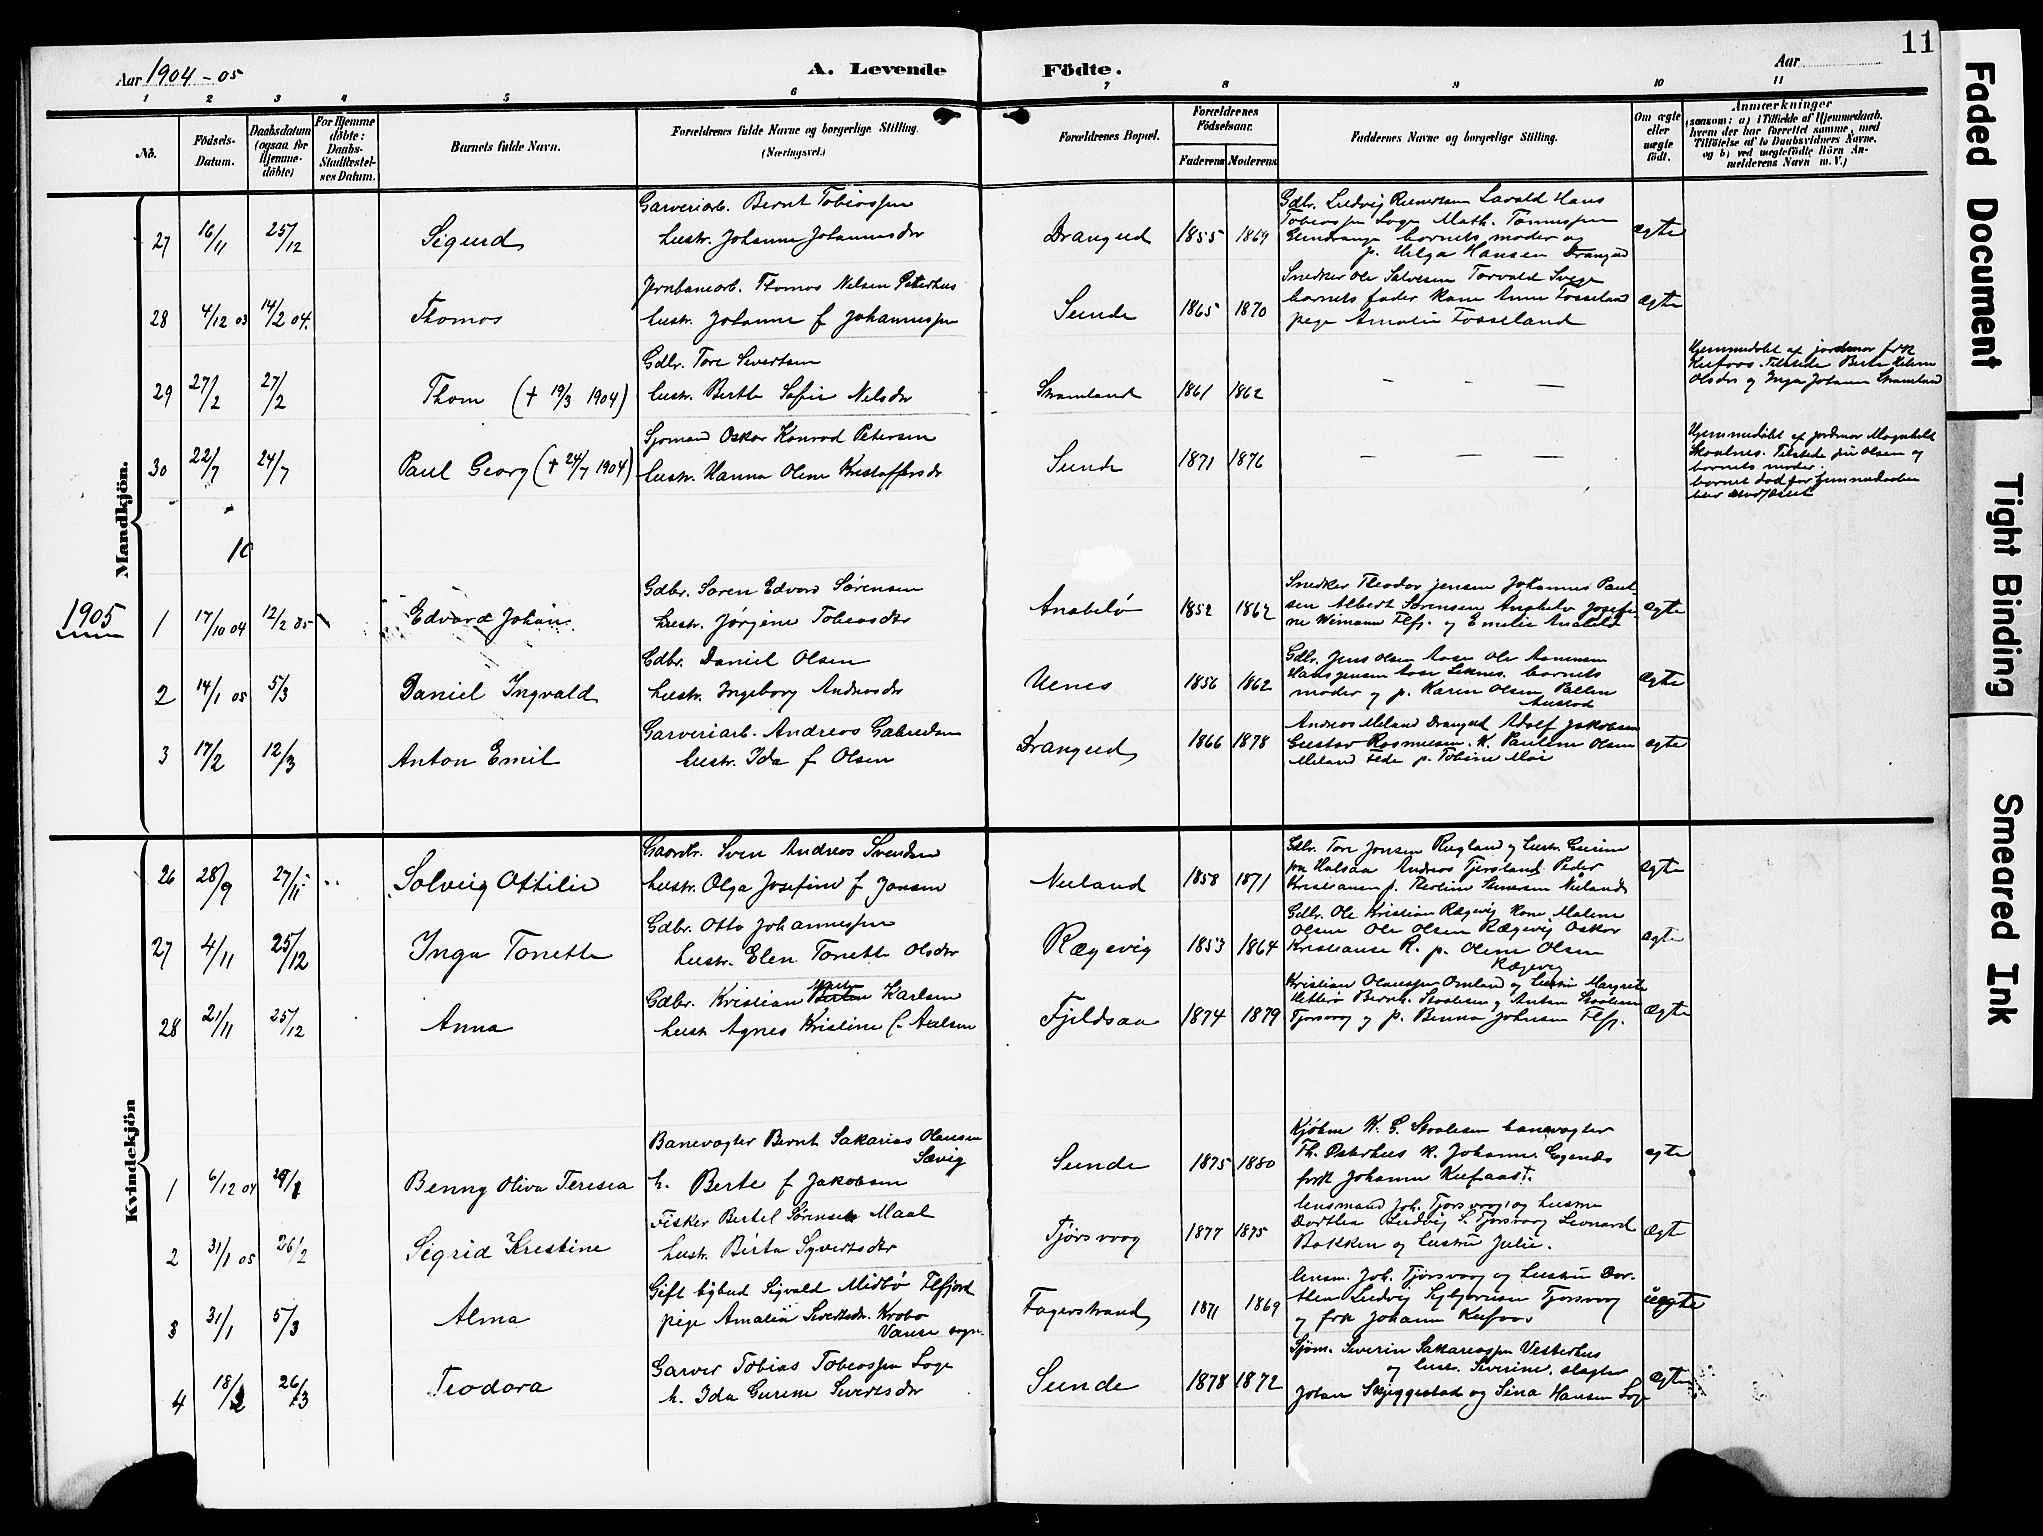 11
Aar 1904-05
A. Levende
Födte.
Aar
1 2 3 4 5 6 7 8 9 10 11
No.
Födsels-Datum.
Daabsdatum (ogsaa for Hjemme-døbte)
For Hjemme døbte: Daabs-Stadfæstel-ses Datum.
Barnets fulde Navn.
Forældrenes fulde Navne og borgerlige Stilling.
(Næringsvei.)
Forældrenes Bopæl.
Forældrenes Födselsaar.
Faderens Moderens
Faddernes Navne og borgerlige Stilling.
Om ægte eller uægte födt.
Anmærkninger
(saasom: a) i Tilfælde af Hjemmedaab, hvem der har forrettet samme, med Tilföielse af to Daabsvidners Navne, og b) ved uægtefödte Börn Anmelderens Navn m. V.)
Mandkjön.
27 16/11 25/12 Sigurd
Garveriarb. Bernt Tobiassen
hustr. Johanne Johannesdr
Drangeid 1855 1869
barnets moder og
p. Helga Hansen Drangeid
ægte
28 4/12 03 14/2 04. Thomas
Jernbanearb. Thomas Nilsen Peterhus
hustr. Johanne f Johannessen
Sunde 1865 1870
Snedker Ole Salvesen Torvald Svege
barnets fader kone Anne Fosseland
pige Amalie Fosseland
ægte
29 27/2 27/2 Thom († 19/3 1904)
Gdbr. Tore Sivertsen
hustr. Berthe Sofie Nilsdr
1861 1862
— — —
Hjemmedøbt af jordmor frk
Kufaas. Tilstede Berte Helene
Olsdr og Inga Johanne
30 22/7 24/7 Paul Georg († 24/7 1904)
Sjømand Oskar Konrad Petersen
hustr. Hanna Olene Kristoffersdr
Sunde 1871 1876
— — —
Hjemmedøbt af jordmor Magnhild
Tilstede Olsen og
barnets moder.
barnet død før hjemmedaaben
blev stadfæstet
10
1905
1 17/10 04 12/2 05 Edvard Johan
Gdbr. Søren Edvard Sørensen
hustr. Jørgine Tobiasdr
Anabelø 1852 1862
Snedker Theodor Jensen Johannes Paul
sen Albert Sørensen Anabelø Josefi-
ne Weimann Flfj. og Emelie Anabelø
ægte
2 14/1 05 5/3 Daniel Ingvald
Gdbr. Daniel Olsen
hustr. Ingeborg Andreasdr
Uenes 1856 1862
Gdbr. Jens Olsen Aase Ole Asmensen
Hans Jensen Aase Leknes. barnets
moder og p. Karen Olsen Pallen
Austad
ægte
3 17/2 12/3 Anton Emil
Garveriarb. Andreas Gabrielsen
hustr. Ida f Olsen
Drangeid 1866 1878
Andreas Meland Drangeid Adolf Jakobsen
Gustav Rasmussen. K. Pauline Olsen
Meland Fede p. Tobine Moi
ægte
Kvindekjön
26 28/9 27/11 Solveig Ottilie
Gaardbr. Sven Andreas Svendsen
hustr. Olga Josefine f Jonsen
Nuland 1858 1871
Gdbr. Tore Jonsen Rugland og hustr. Gurine
fra Halsaa Andreas Tjersland Peder
ægte
27 4/11 25/12 Inga Tonette
Gdbr. Otto Johannessen
hustr. Elen Tonette Olsdtr
Rægevig 1853 1864
Gdbr. Ole Kristian Rægevig kone Malene
Olsen Ole Olsen Rægevig Oskar
Kristianse R. p. Olene Olsen
Rægevig
ægte
28 21/11 25/12 Anna
Gdbr. Kristian Karlsen
hustr Agnes Kristine f. Axelsen
Fjeldsaa 1874 1879
Kristian Olaussen Omland og hustru Margrete
Hitterø Bernt Staalesen og Anton Staalesen
Tjorsvaag og p. Benna Johnsen Flfj.
ægte
1 6/12 04 29/1 Benny Oliva Teresia
Banevogter Bernt Sakarias Olausen
Sævig
h. Berte f Jakobsen
Sunde 1875 1880
Kjøbm K. G. Staalesen banevogter
Th. Peterhus K. Johanne Egenæs
frk Johanne Kufaas.
ægte
2 31/1 05 26/2 Sigrid Kristine
Fisker Bertel Sørensen Maal
hustr. Birta Syvertsdtr
Tjørsvaag 1877 1875
lensmand Joh. Tjorsvaag og hustru
Dorthea Ludvig S. Tjorsvaag Leonard
Bakken og hustru Julie.
ægte
3 31/1 5/3 Alma
Gift bybud Sigvald Midbø Flfjord
pige Amalia Sivertsdr. Krobø
Vanse sogn.
Fagerstrand 1871 1869
lensm. Joh. Tjørsvaag og hustru Dor-
thea Ludvig Tjorsvaag
og frk Johanne Kufaas
uægte
4 18/2 26/3 Teodora
Garver Tobias Tobiassen Loge
h. Ida Gurine Sivertsdr
Sunde 1878 1872
Sjøm. Severin Sakariassen Vesterhus
og hustr. Severine. slagter
Johan Skjeggestad og Sina Hansen Loge
ægte
Faded Document
Tight Binding
Smeared Ink